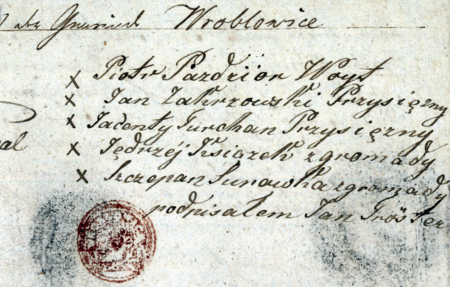 Wroblowice
x Piotr Pazdziór Woyt
x Jan Zakrzowski Przysiężny
x Jacenty Turchan Przysiężny
x Jędrzej Książek z gromady
x Szczepan Surowka z gromady
podpisałem Jan Tröster